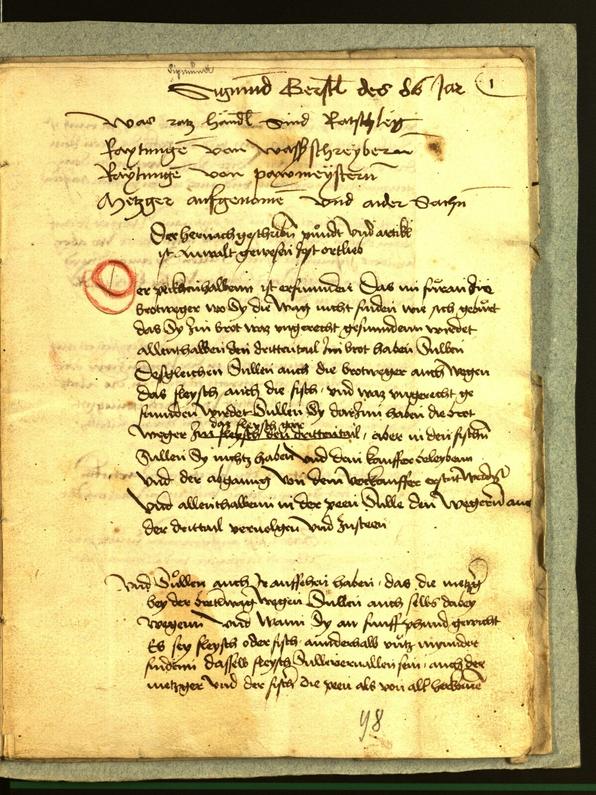 Sigmund
Sigmund Gerstl des 86 Jar 1
Was ratz händl Sind Ratschleg
Raytungen von wasserschreybern
Raytungen von pawmeystern
Metzger aufgenomen und ander Sachn
Der hernach geschriben pundt und artikl
ist anwalt gewesen Jost ortlieb
Der pekchen halbenn ist erfunden Das nu furan die
brotweger wo Sy die wag nicht finden wie sich gebürt
das Sy Im brot waz ungerecht gefunndenn wirdet
allenthalben den drittentail Im brot haben Sullen
Desgleichen Sullen auch die brotweger auch wegen
das fleysch auch die fisch und waz ungerecht ge
funnden wirdet Sullen Sy darInn haben die brot
das fleysch gar
weger Im fleysch den drittentail, aber in den fischn
Sullen Sy nichtz haben und dem kauffer beleyben
und der abganng von dem verkauffer erstat werden
und allenthalbenn in der peen Sulle den wegern auch
der drittail vervolgen und zusteen
Und Sullen auch Ir auffsehen haben, das die metzg
bey der wegen Sullen auch selbs dabey
wegenn und Wann Sy an funff phund gewicht
Es sey fleysch oder fisch annderhalb myndert
finden dasselb fleysch Sulle vervallen sein, auch der
metzger und der fisch die peen als von allt herkome
98